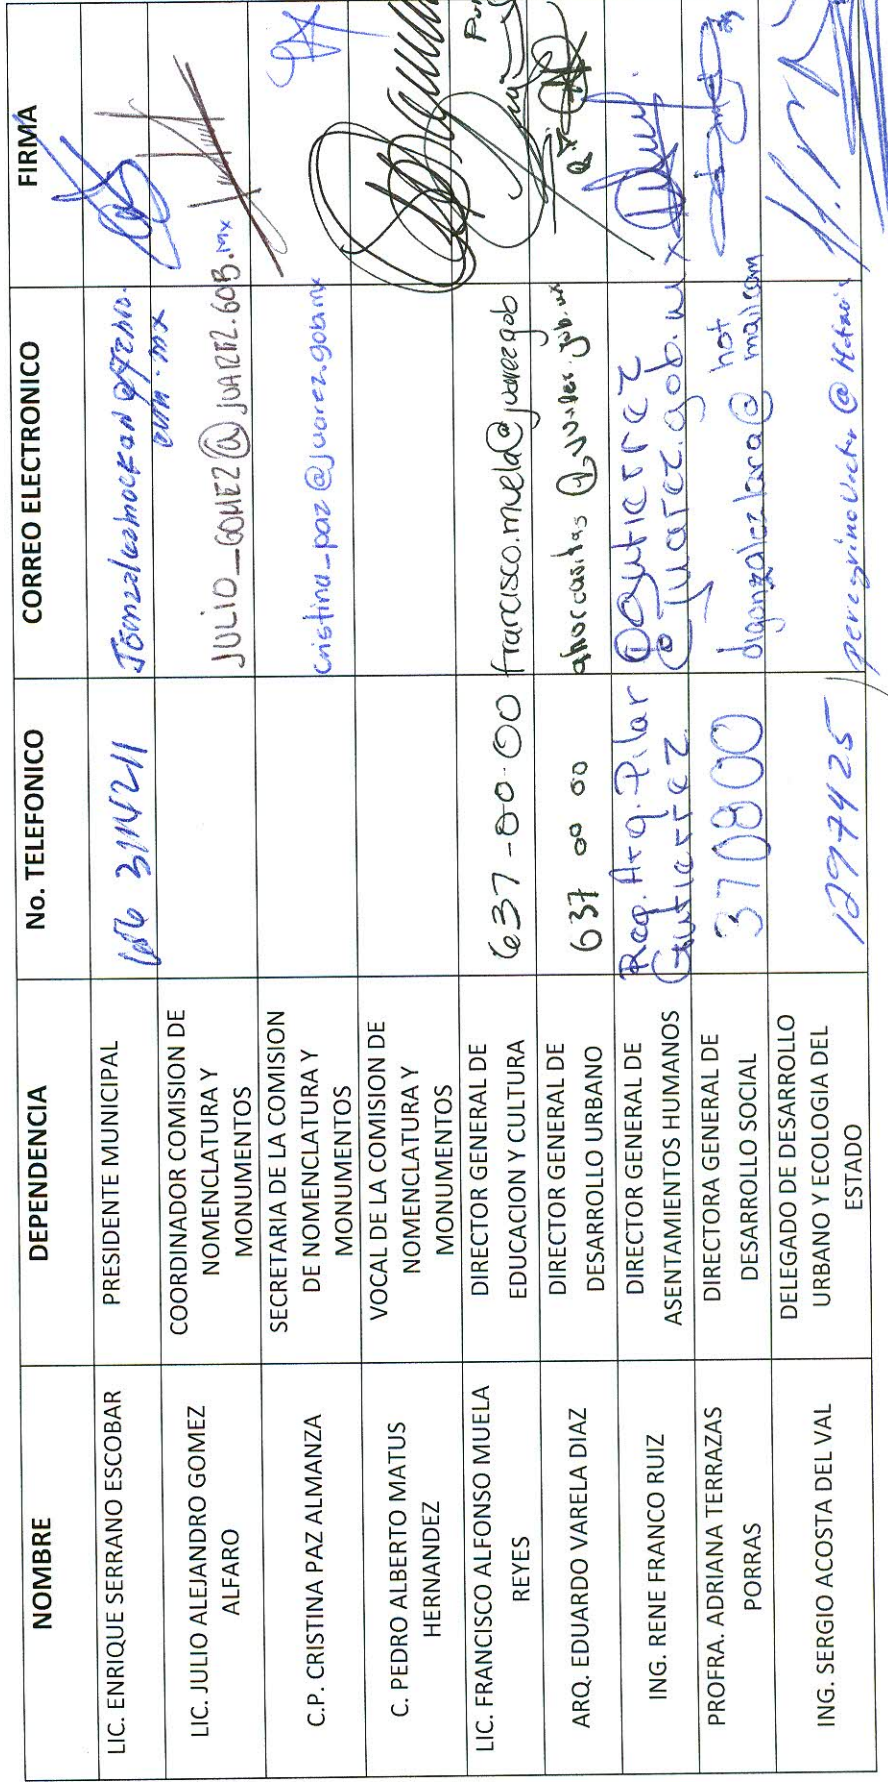 NOMBRE DEPENDENCIA No. TELEFONICO CORREO ELECTRONICO FIRMA
LIC. ENRIQUE SERRANO ESCOBAR PRESIDENTE MUNICIPAL 656 3114211
LIC. JULIO ALEJANDRO GOMEZ
ALFARO
COORDINADOR COMISION DE
NOMENCLATURA Y
MONUMENTOS
JULIO_GOMEZ@JUAREZ.GOB.mx
C.P. CRISTINA PAZ ALMANZA
SECRETARIA DE LA COMISION
DE NOMENCLATURA Y
MONUMENTOS
cristina_paz@juarez.gob.mx
C. PEDRO ALBERTO MATUS
HERNANDEZ
VOCAL DE LA COMISION DE
NOMENCLATURA Y
MONUMENTOS
LIC. FRANCISCO ALFONSO MUELA
REYES
DIRECTOR GENERAL DE
EDUCACION Y CULTURA
637-00-00
francisco.muela@juarez.gob
ARQ. EDUARDO VARELA DIAZ
DIRECTOR GENERAL DE
DESARROLLO URBANO
637 00 00
ahorcasitas@juarez.gob.mx
ING. RENE FRANCO RUIZ
DIRECTOR GENERAL DE
ASENTAMIENTOS HUMANOS
Reg. Arq. Pilar
Gutierrez
@juarez.gob.mx
PROFRA. ADRIANA TERRAZAS
PORRAS
DIRECTORA GENERAL DE
DESARROLLO SOCIAL
370800
digonzalezlara@hot
mail.com
ING. SERGIO ACOSTA DEL VAL
DELEGADO DE DESARROLLO
URBANO Y ECOLOGIA DEL
ESTADO
1297425